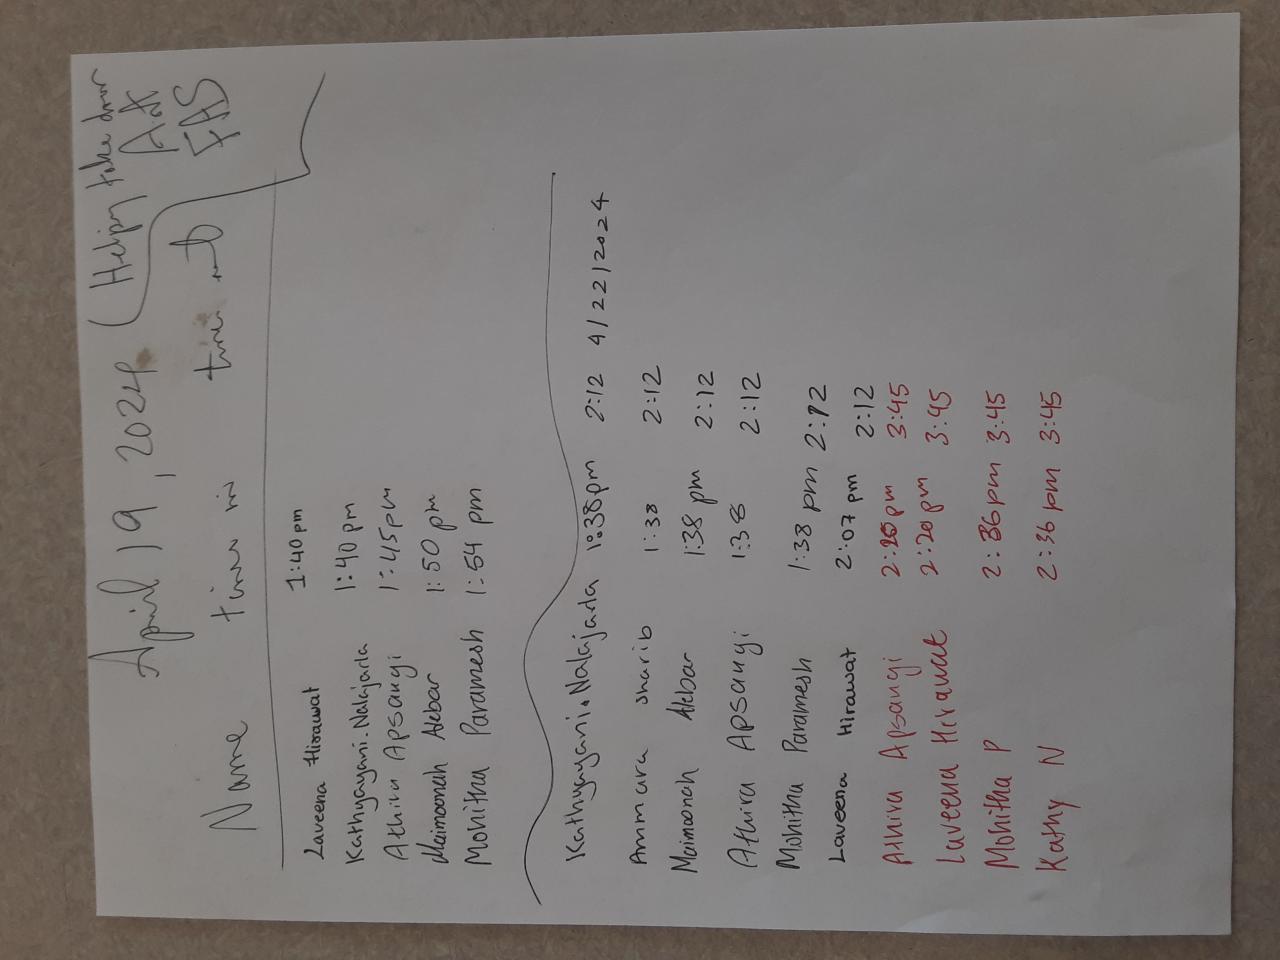 April 19, 2024 (Helping take down
Art
FAS
Name time in time out
Laveena Hirawat 1:40pm
Kathyayani.Nalajarla 1:40pm
Athira Apsangi 1:45pm
Maimoonah Akbar 1:50pm
Mohitha Paramesh 1:54 pm
Kathyayani.Nalajarla 1:38pm 2:12 4/22/2024
Ammara Sharib 1:38 2:12
Maimoonah Akbar 1:38 pm 2:12
Athira Apsangi 1:38 2:12
Mohitha Paramesh 1:38 pm 2:12
Laveena Hirawat 2:07 pm 2:12
Athira Apsangi 2:20pm 3:45
Laveena Hirawat 2:20pm 3:45
Mohitha P 2:36pm 3:45
Kathy N 2:36 pm 3:45